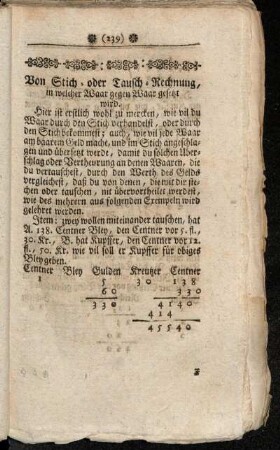 (239)
Von Stich- oder Tausch-Rechnung,
in welcher Waar gegen Waar gesetzt
wird.
Hier ist erstlich wohl zu mercken, wie vil du
Waar durch den Stich verhandelst, oder durch
den Stich bekommest; auch, wie vil jede Waar
am baarem Geld mache, und im Stich angeschla-
gen und übersetzt werde, damit du solchen Uber-
schlag oder Vertheurung an denen Waaren, die
du vertauschest, durch den Werth des Gelds
vergleichest, daß du von denen, die mit dir ste-
chen oder tauschen, nit übervortheilet werdest,
wie des mehrern aus folgenden Exempeln wird
gelehret werden.
Item: zwey wollen miteinander tauschen, hat
A. 138. Centner Bley, den Centner vor 5. fl.,
30. Kr., B. hat Kupffer, den Centner vor 12.
fl., 50. Kr. wie vil soll er Kupffer für obiges
Bley geben.
Centner Bley Gulden Kreutzer Centner
1 5 30 138
60 330
330 4140
414
45540